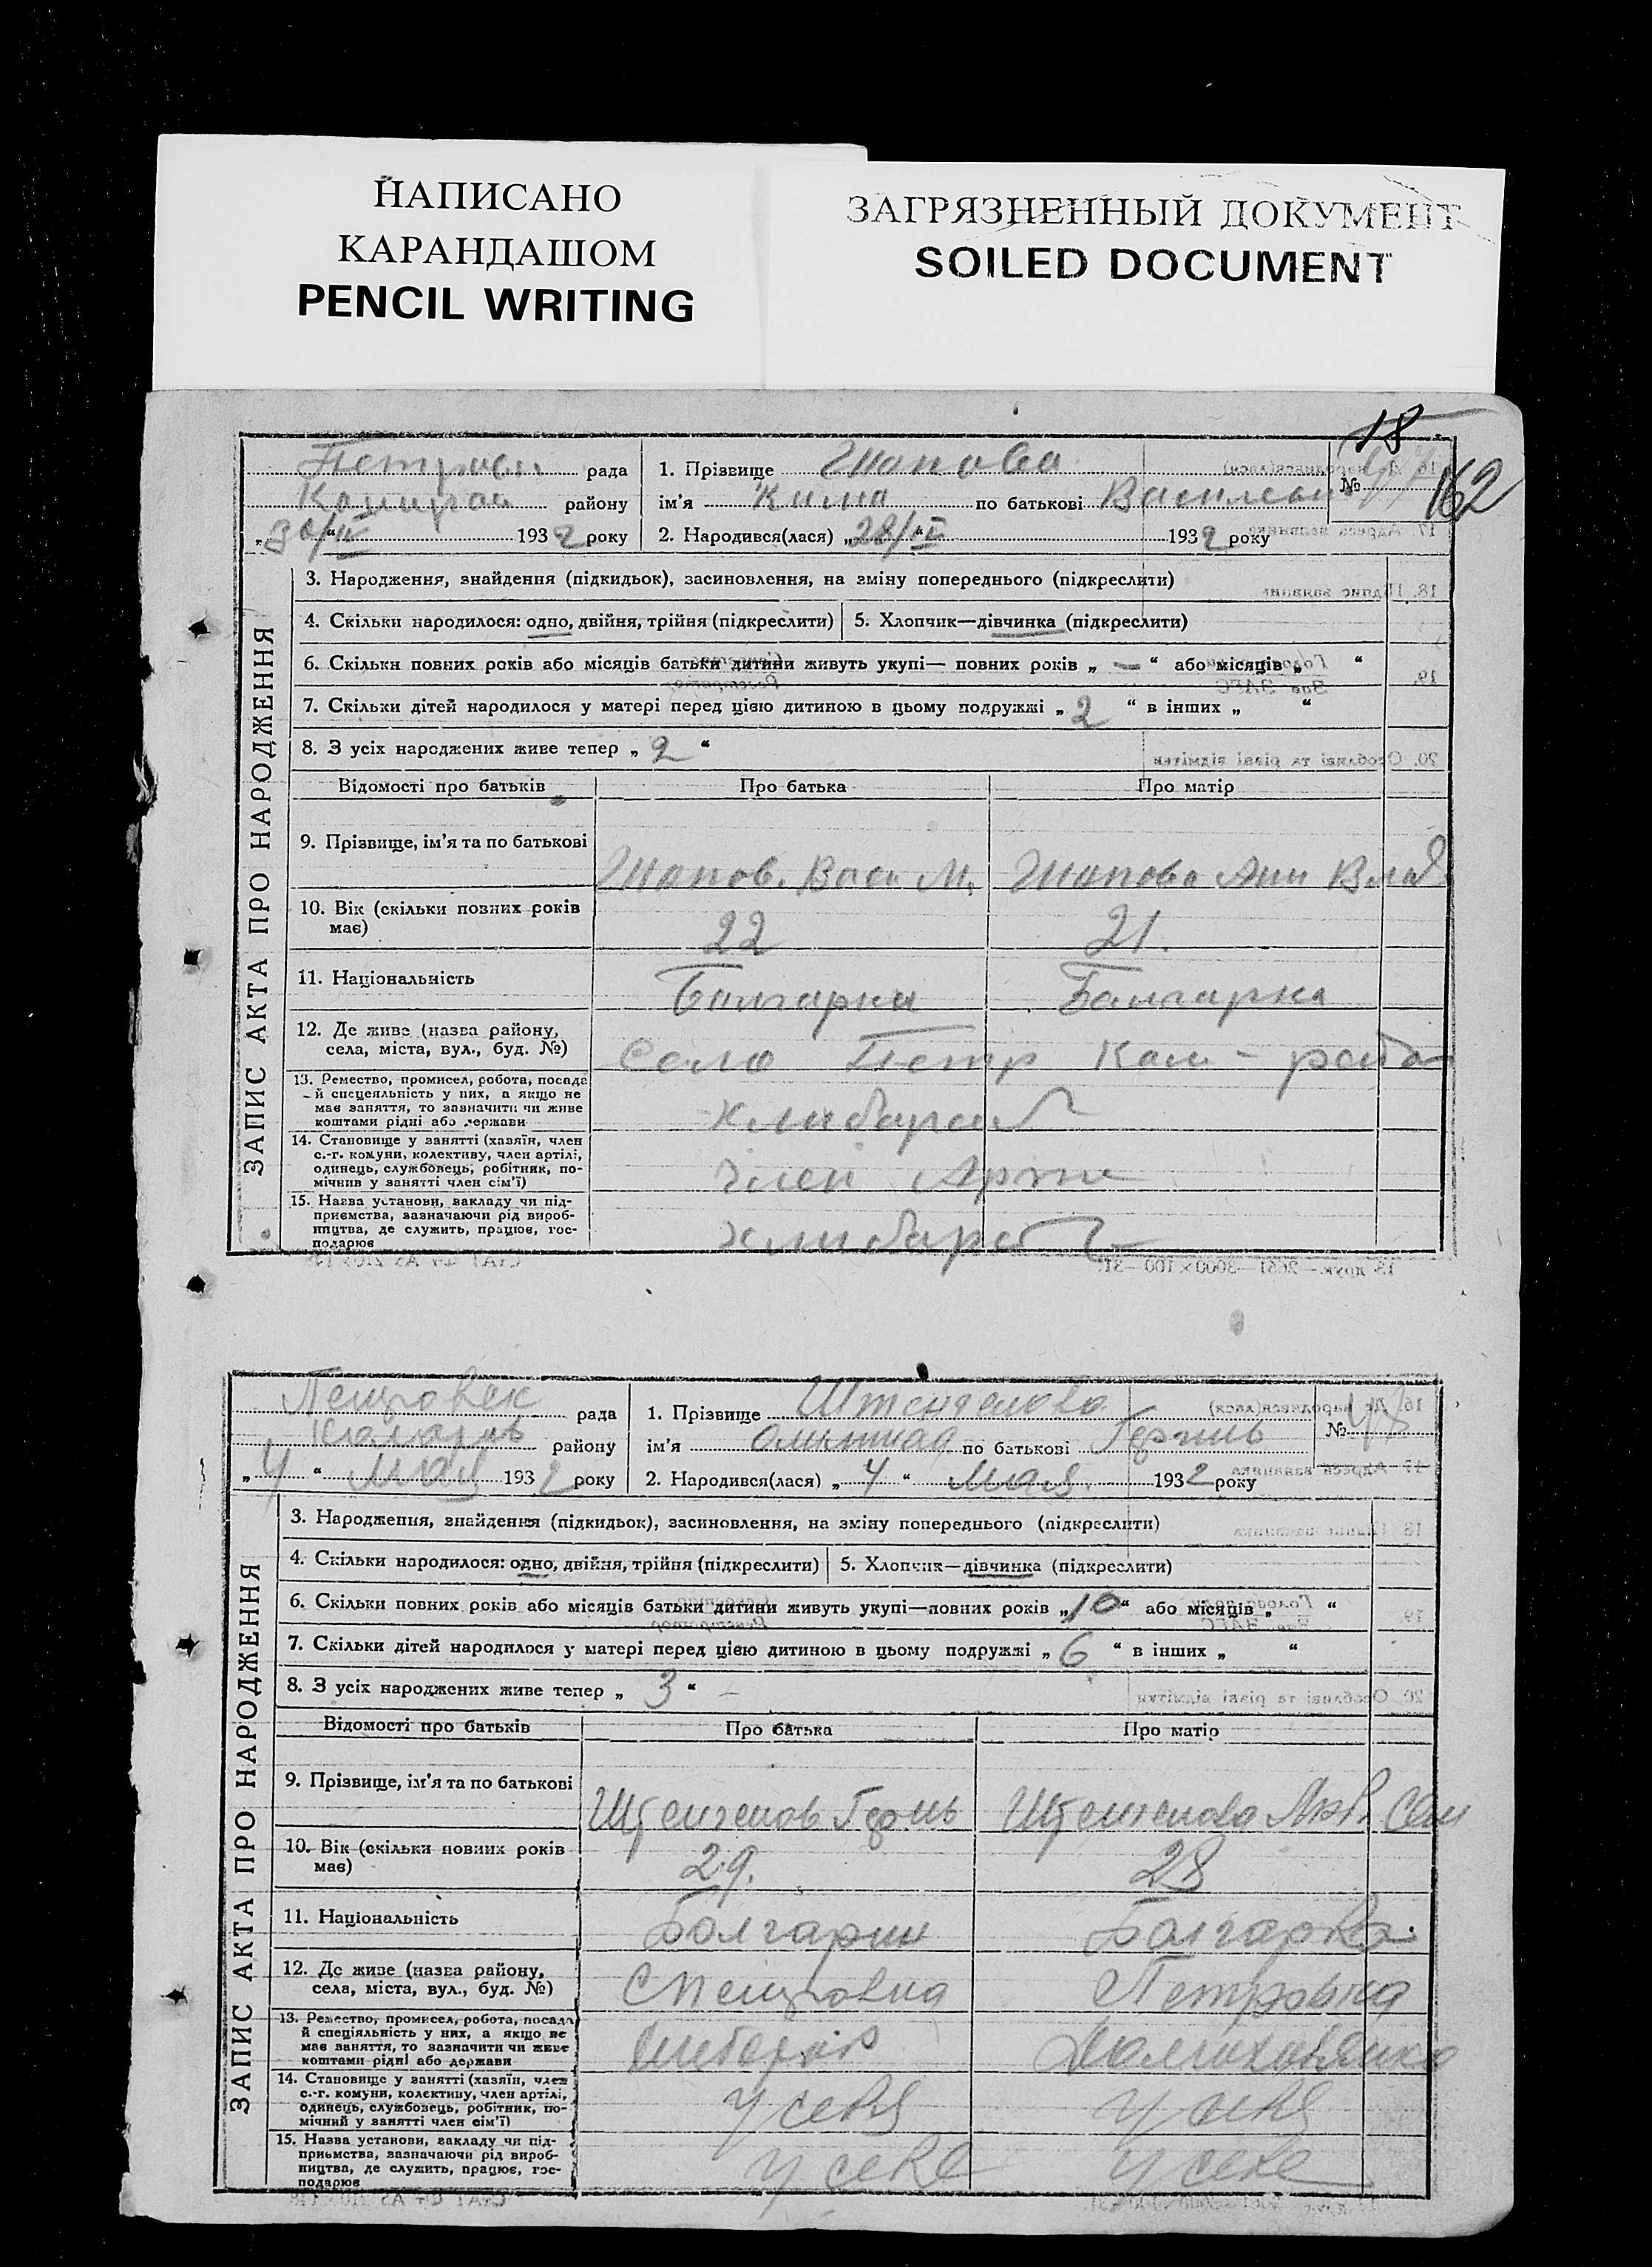 НАПИСАНО
КАРАНДАШОМ
PENCIL WRITING
ЗАГРЯЗНЕННЫЙ ДОКУМЕНТ
SOILED DOCUMENT
18
162
рада
району
„30/IV“ 1932 року
1. Прізвище Шапова
ім'я Кима по батькові
№ 47
2. Народився(лася) „28/“ 1932 року
ЗАПИС АКТА ПРО НАРОДЖЕННЯ
3. Народження, знайдення (підкидьок), засиновлення, на зміну попереднього (підкреслити)
4. Скільки народилося: одно, двійня, трійня (підкреслити)
5. Хлопчик—дівчинка (підкреслити)
6. Скільки повних років або місяців батьки дитини живуть укупі— повних років „ — “ або місяців „ “
7. Скільки дітей народилося у матері перед цією дитиною в цьому подружжі „ 2 “ в інших „ “
8. З усіх народжених живе тепер „ 2 “
Відомості про батьків
Про батька
Про матір
9. Прізвище, ім'я та по батькові
Шапов. Васи М.
Шапова Анн Влад
10. Вік (скільки повних років
має)
22
21.
11. Національність
Болгарин
Болгарка
12. Де живе (назва району,
села, міста, вул., буд. №)
Село Петр Ком - район
13. Ремество, промисел, робота, посада
й спеціяльність у них, а якщо не
має заняття, то зазначити чи живе
коштами рідні або держави
14. Становище у занятті (хазяїн, член
с.-г. комуни, колективу, член артілі,
одинець, службовець, робітник, по-
мічник у занятті член сім'ї)
член Арти
15. Назва установи, закладу чи під-
приємства, зазначаючи рід вироб-
ництва, де служить, працює, гос-
подарює
рада
району
„ 4 “ мая 1932 року
1. Прізвище
ім'я по батькові
№ 48
2. Народився(лася) „ 4 “ мая. 1932 року
ЗАПИС АКТА ПРО НАРОДЖЕННЯ
3. Народження, знайдення (підкидьок), засиновлення, на зміну попереднього (підкреслити)
4. Скільки народилося: одно, двійня, трійня (підкреслити)
5. Хлопчик—дівчинка (підкреслити)
6. Скільки повних років або місяців батьки дитини живуть укупі—повних років „10“ або місяців „ “
7. Скільки дітей народилося у матері перед цією дитиною в цьому подружжі „ 6 “ в інших „ “
8. З усіх народжених живе тепер „ 3 “ –
Відомості про батьків
Про батька
Про матір
9. Прізвище, ім'я та по батькові
10. Вік (скільки повних років
має)
29.
28
11. Національність
Болгарин
Болгарка
12. Де живе (назва району,
села, міста, вул., буд. №)
С Петровка
Петровка
13. Ремество, промисел, робота, посада
й спеціяльність у них, а якщо не
має заняття, то зазначити чи живе
коштами рідні або держави
14. Становище у занятті (хазяїн, член
с.-г. комуни, колективу, член артілі,
одинець, службовець, робітник, по-
мічний у занятті член сім'ї)
у себя
у себя
15. Назва установи, закладу чи під-
приємства, зазначаючи рід вироб-
ництва, де служить, працює, гос-
подарює
у себе
у себе